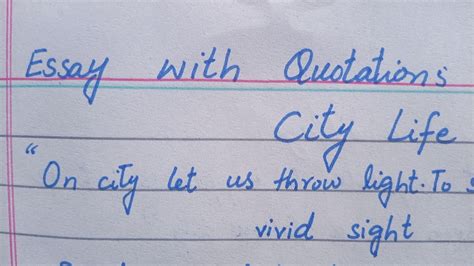 Essay with Quotations
City Life
"On city let us throw light. To
vivid sight